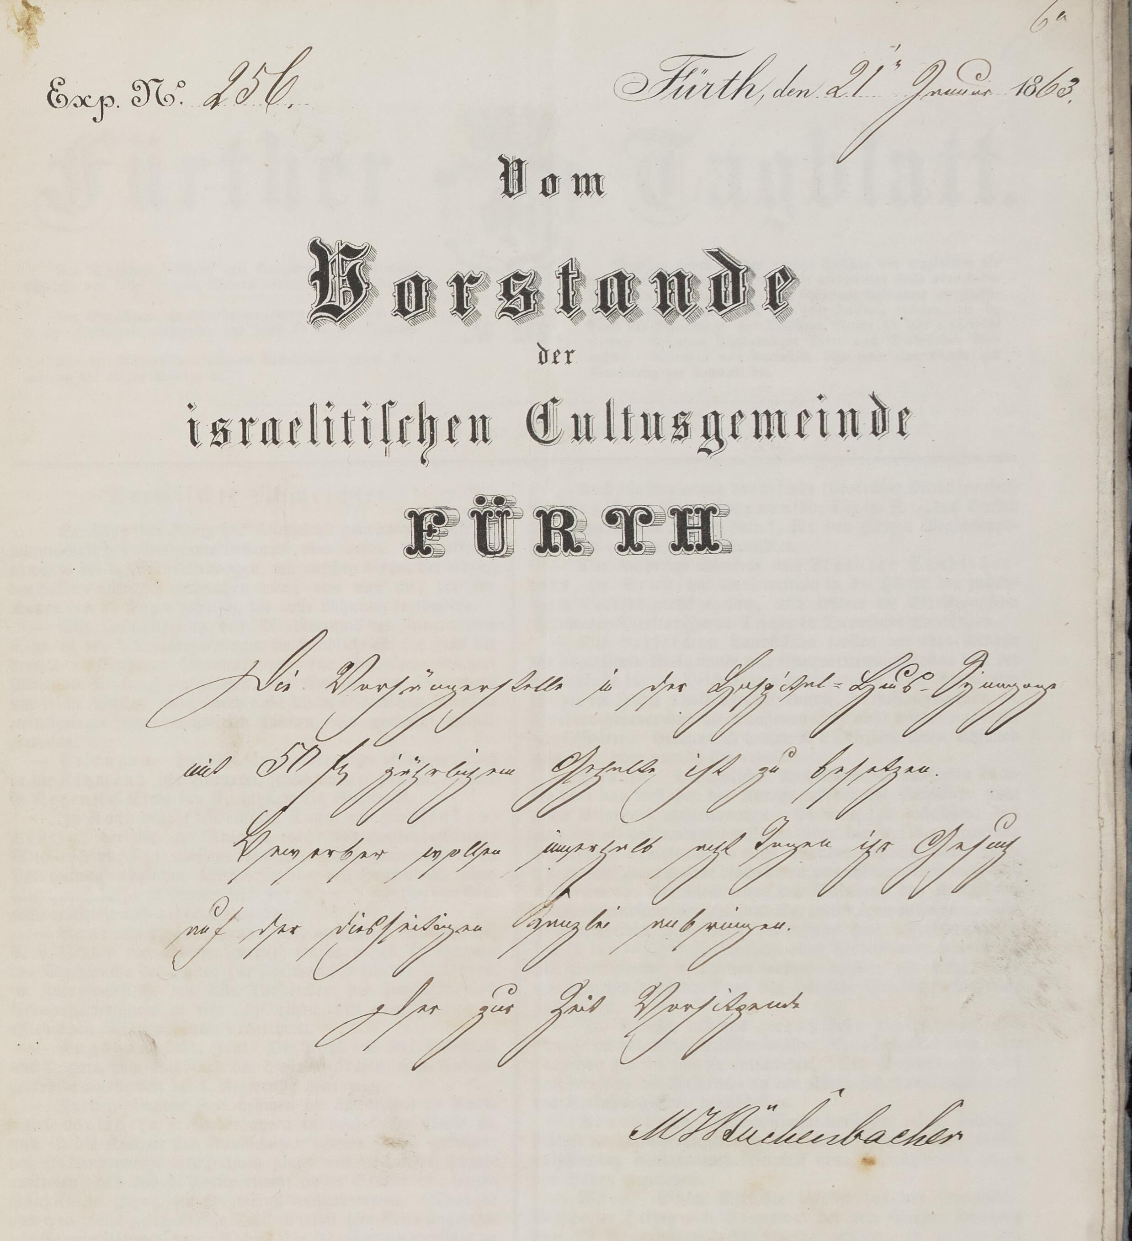 6a
Exp. No. 256.
Fürth, den 21ten Januar 1863.
Vom
Vorstande
der
israelitischen Cultusgemeinde
FÜRTH
Die Vorsängerstelle in der Hospital-Haus-Synagoge
mit 50 fl jährlichem Gehalte ist zu besetzen.
Bewerber wollen innerhalb acht Tagen ihr Gesuch
auf der diesseitigen Kanzlei anbringen.
Der zur Zeit Vorsitzende
Büchenbacher